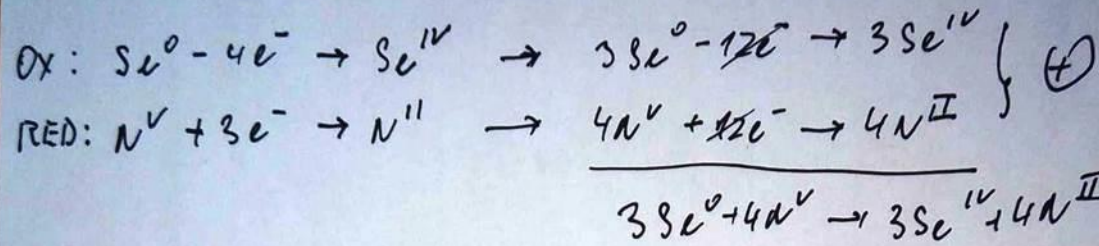 OX: Se⁰ - 4e⁻ → Se^IV → 3Se⁰ - 12e⁻ → 3Se^IV } ⊕
RED: N^V + 3e⁻ → N^II → 4N^V + 12e⁻ → 4N^II
3Se⁰ + 4N^V → 3Se^IV + 4N^II